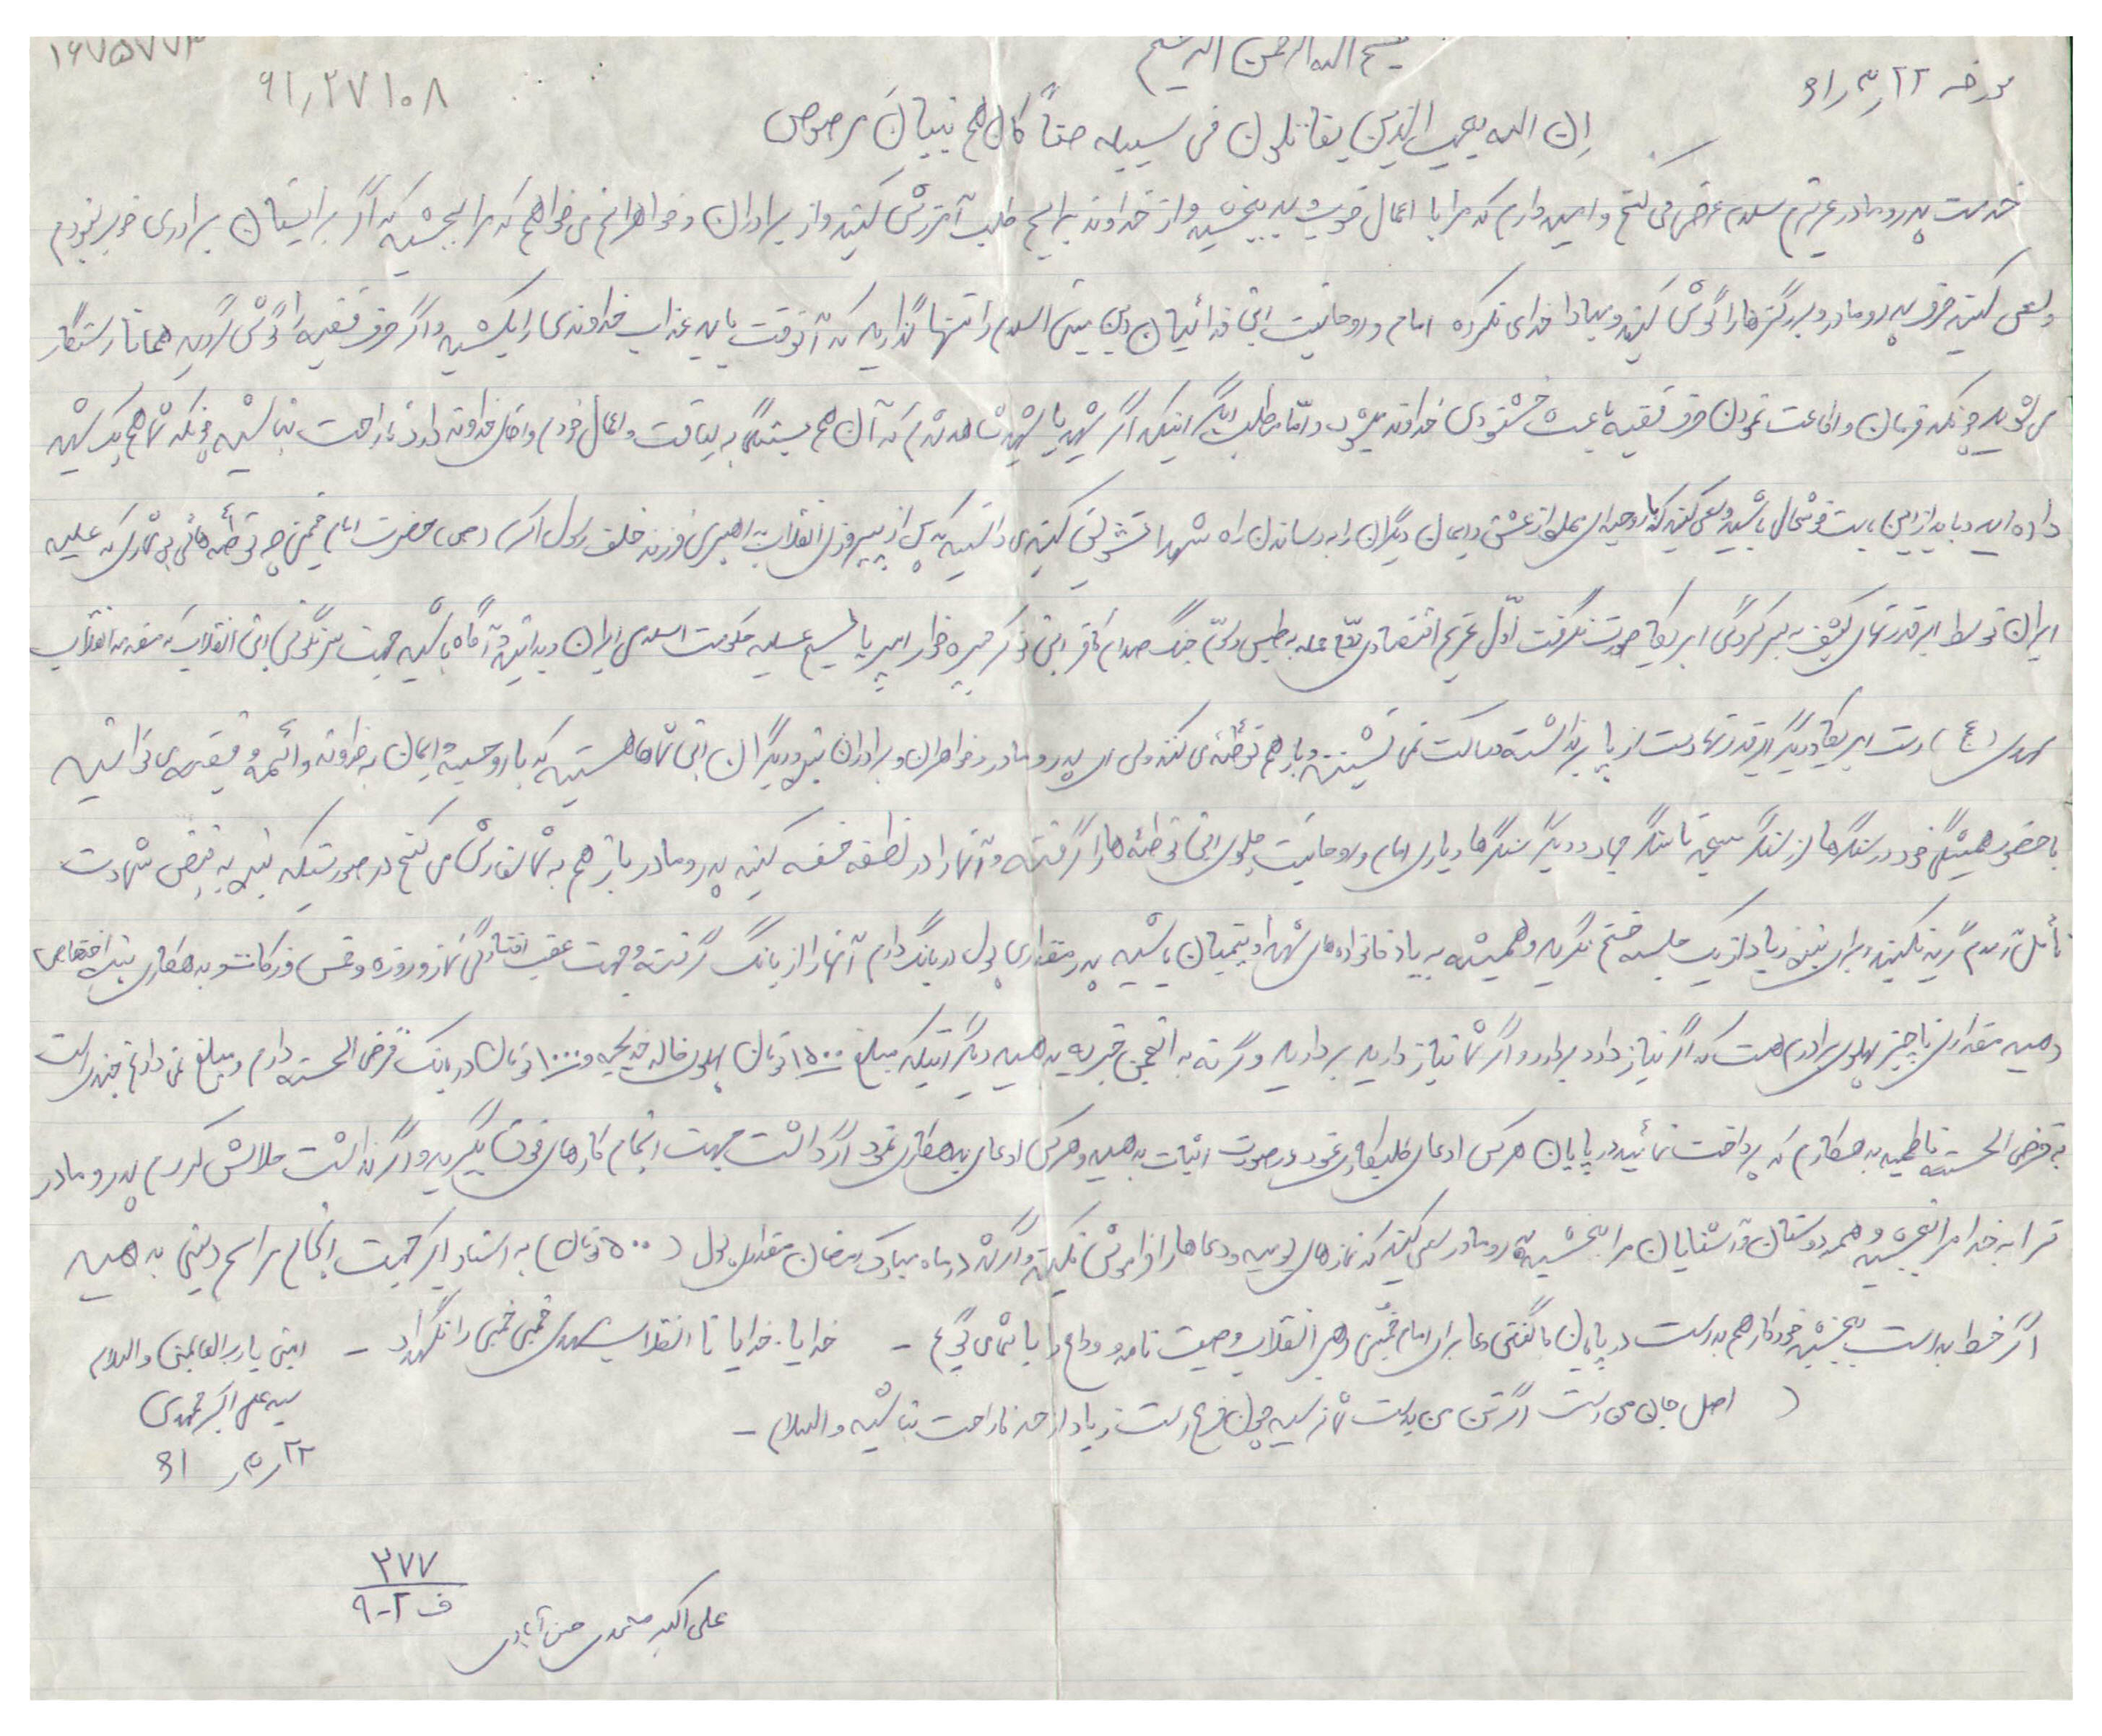 ۱۶۷۵۷۷۳
بسم الله الرحمن الرحیم
مورخه ۲۲ر۳ر61
۹۱٫۲۷۱۰۸
اِن الله یحب الذین یقاتلون فی سبیله صفاً کان هم بنیانَ مرصوص
خدمت پدر و مادر عزیزم سلام عرض می کنم و امید دارم که مرا با اعمال خوب و بد ببخشید و از خداوند برایم طلب آمرزش کنید و از برادران و خواهرانم می خواهم که مرا ببخشید که اگر برایشان برادری خوب نبودم
و سعی کنید حرف پدر و مادر و بزرگترها را گوش کنید و مبادا خدای نکرده امام و روحانیت این فدائیان دین مبین اسلام را تنها گذارید که آنوقت باید عذاب خداوندی را بکشید و اگر حرف فقیه را گوش کردید همانا رستگار
می شوید چونکه فرمان و اطاعت نمودن حرف فقیه باعث خشنودی خداوند میشود و امّا مطلب دیگر اینکه اگر شهید یا شهید شاهد شدم که آن هم بستگی به لیاقت و اعمال خودم و خداوند دارد ناراحت نباشید چونکه شما هم یک شهید
داده اید و باید از این بابت خوشحال باشید و سعی کنید که با روحیه ای مملو از عشق و ایمان دیگران را به رساندن راه شهدا تشویق کنید می دانستید که پس از پیروزی انقلاب به رهبری فرزند خلف رسول اکرم (ص) حضرت امام خمینی چه توطئه هائی بی شماری که علیه
ایران توسط ابر قدرتهای کثیف به سرکردگی امریکا صورت نگرفت اوّل تحریم اقتصادی دوّم حمله به طبس و سوّم جنگ صدام کافر این نوکر جیره خوار امپریالیسم علیه حکومت اسلامی ایران و بدانید و آگاه باشید جهت سرنگونی این انقلاب که مقدمه انقلاب
مهدی (ع) است امریکا و دیگر ابرقدرتها دست از پا برنداشته و ساکت نمی نشینند و باز هم توطئه می کنند ولی ای پدر و مادر و خواهران و برادران نیز و دیگران این شماها هستید که با روحیه و ایمان به خداوند و ائمه و فقیه می توانید
با حضور همیشگی خود در سنگرها از سنگر مسجد تا سنگر جهاد و دیگر سنگرها و یاری امام و روحانیت جلوی این توطئه ها را گرفته و آنها را در نطفه خفه کنید پدر و مادر باز هم به شما سفارش می کنم در صورتیکه بنده به فیض شهادت
نائل آمدم گریه نکنید و برای بنده زیاد از یک جلسه ختم نگیرید و همیشه به یاد خانواده های شهدا و یتیمان باشید پدر مقداری پول در بانک دارم آنها را از بانک گرفته و جهت عقب افتادگی نماز و روزه و خمس و زکات و بدهکاری بنده اختصاص
دهید مقداری ناچیز پهلوی برادرم هست که اگر نیاز دارد بردارد و اگر شما نیاز دارید بردارید وگرنه به انجمن خیریه بدهید دیگر اینکه مبلغ ۱۵۰۰ تومان پهلوی خاله خدیجه و ۱۰۰۰۰ تومان در بانک قرض الحسنه دارم و مبلغ نمی دانم چند است
به قرض الحسنه فاطمیه بدهکارم که پرداخت نمائید در پایان هر کس ادعای طلبکاری نمود در صورت اثبات بدهید و هر کس ادعای بدهکاری نمود اگر داشت جهت انجام کارهای فوق بگیرید و اگر نداشت حلالش کردم پدر و مادر
ترا به خدا مرا ببخشید و همه دوستان و آشنایان مرا ببخشید پدر و مادر سعی کنید که نمازهای یومیه و دعاها را فراموش نکنید و اگر شد در ماه مبارک رمضان مقداری پول (۵۰۰ تومان) به استاد جهت انجام مراسم دینی بدهید
اگر خط بد است ببخشید خودکار هم بد است در پایان با گفتن دعا برای امام خمینی رهبر انقلاب وصیت نامه و وداع را با شما می گویم – خدایا. خدایا تا انقلاب مهدی خمینی خمینی را نگهدار – امین یا رب العالمین والسلام
( اصل جان من است اگر تن من بدست شما نرسید چون فرع است زیاد از حد ناراحت نباشید والسلام –
سید علی اکبر محمدی
۲۲ر۳ر 61
۲۷۷
ف ۲-۹
علی اکبر محمدی حسن آبادی